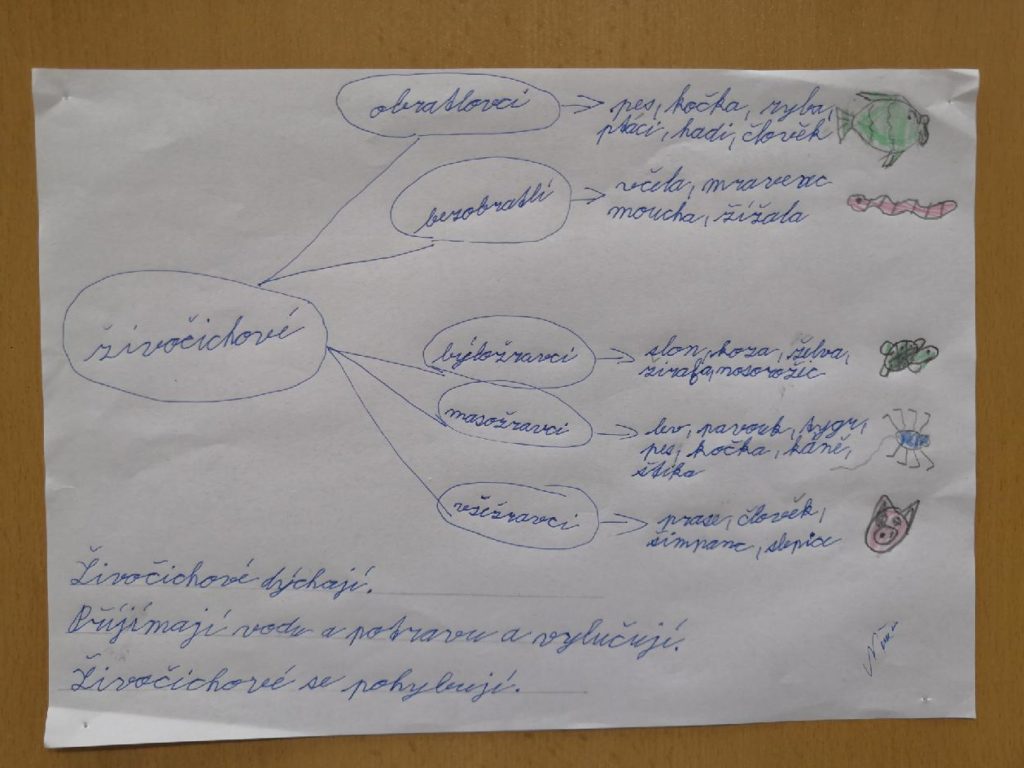 obratlovci
pes, kočka, ryba,
ptáci, hadi, člověk
bezobratlí
včela, mravenec
moucha, žížala
živočichové
býložravci
slon, koza, želva,
žirafa, nosorožec
masožravci
lev, pavouk, tygr,
pes, kočka, káně,
štika
všežravci
prase, člověk,
šimpanz, slepice
Živočichové dýchají.
Příjímají vodu a potravu a vylučují.
Živočichové se pohybují.